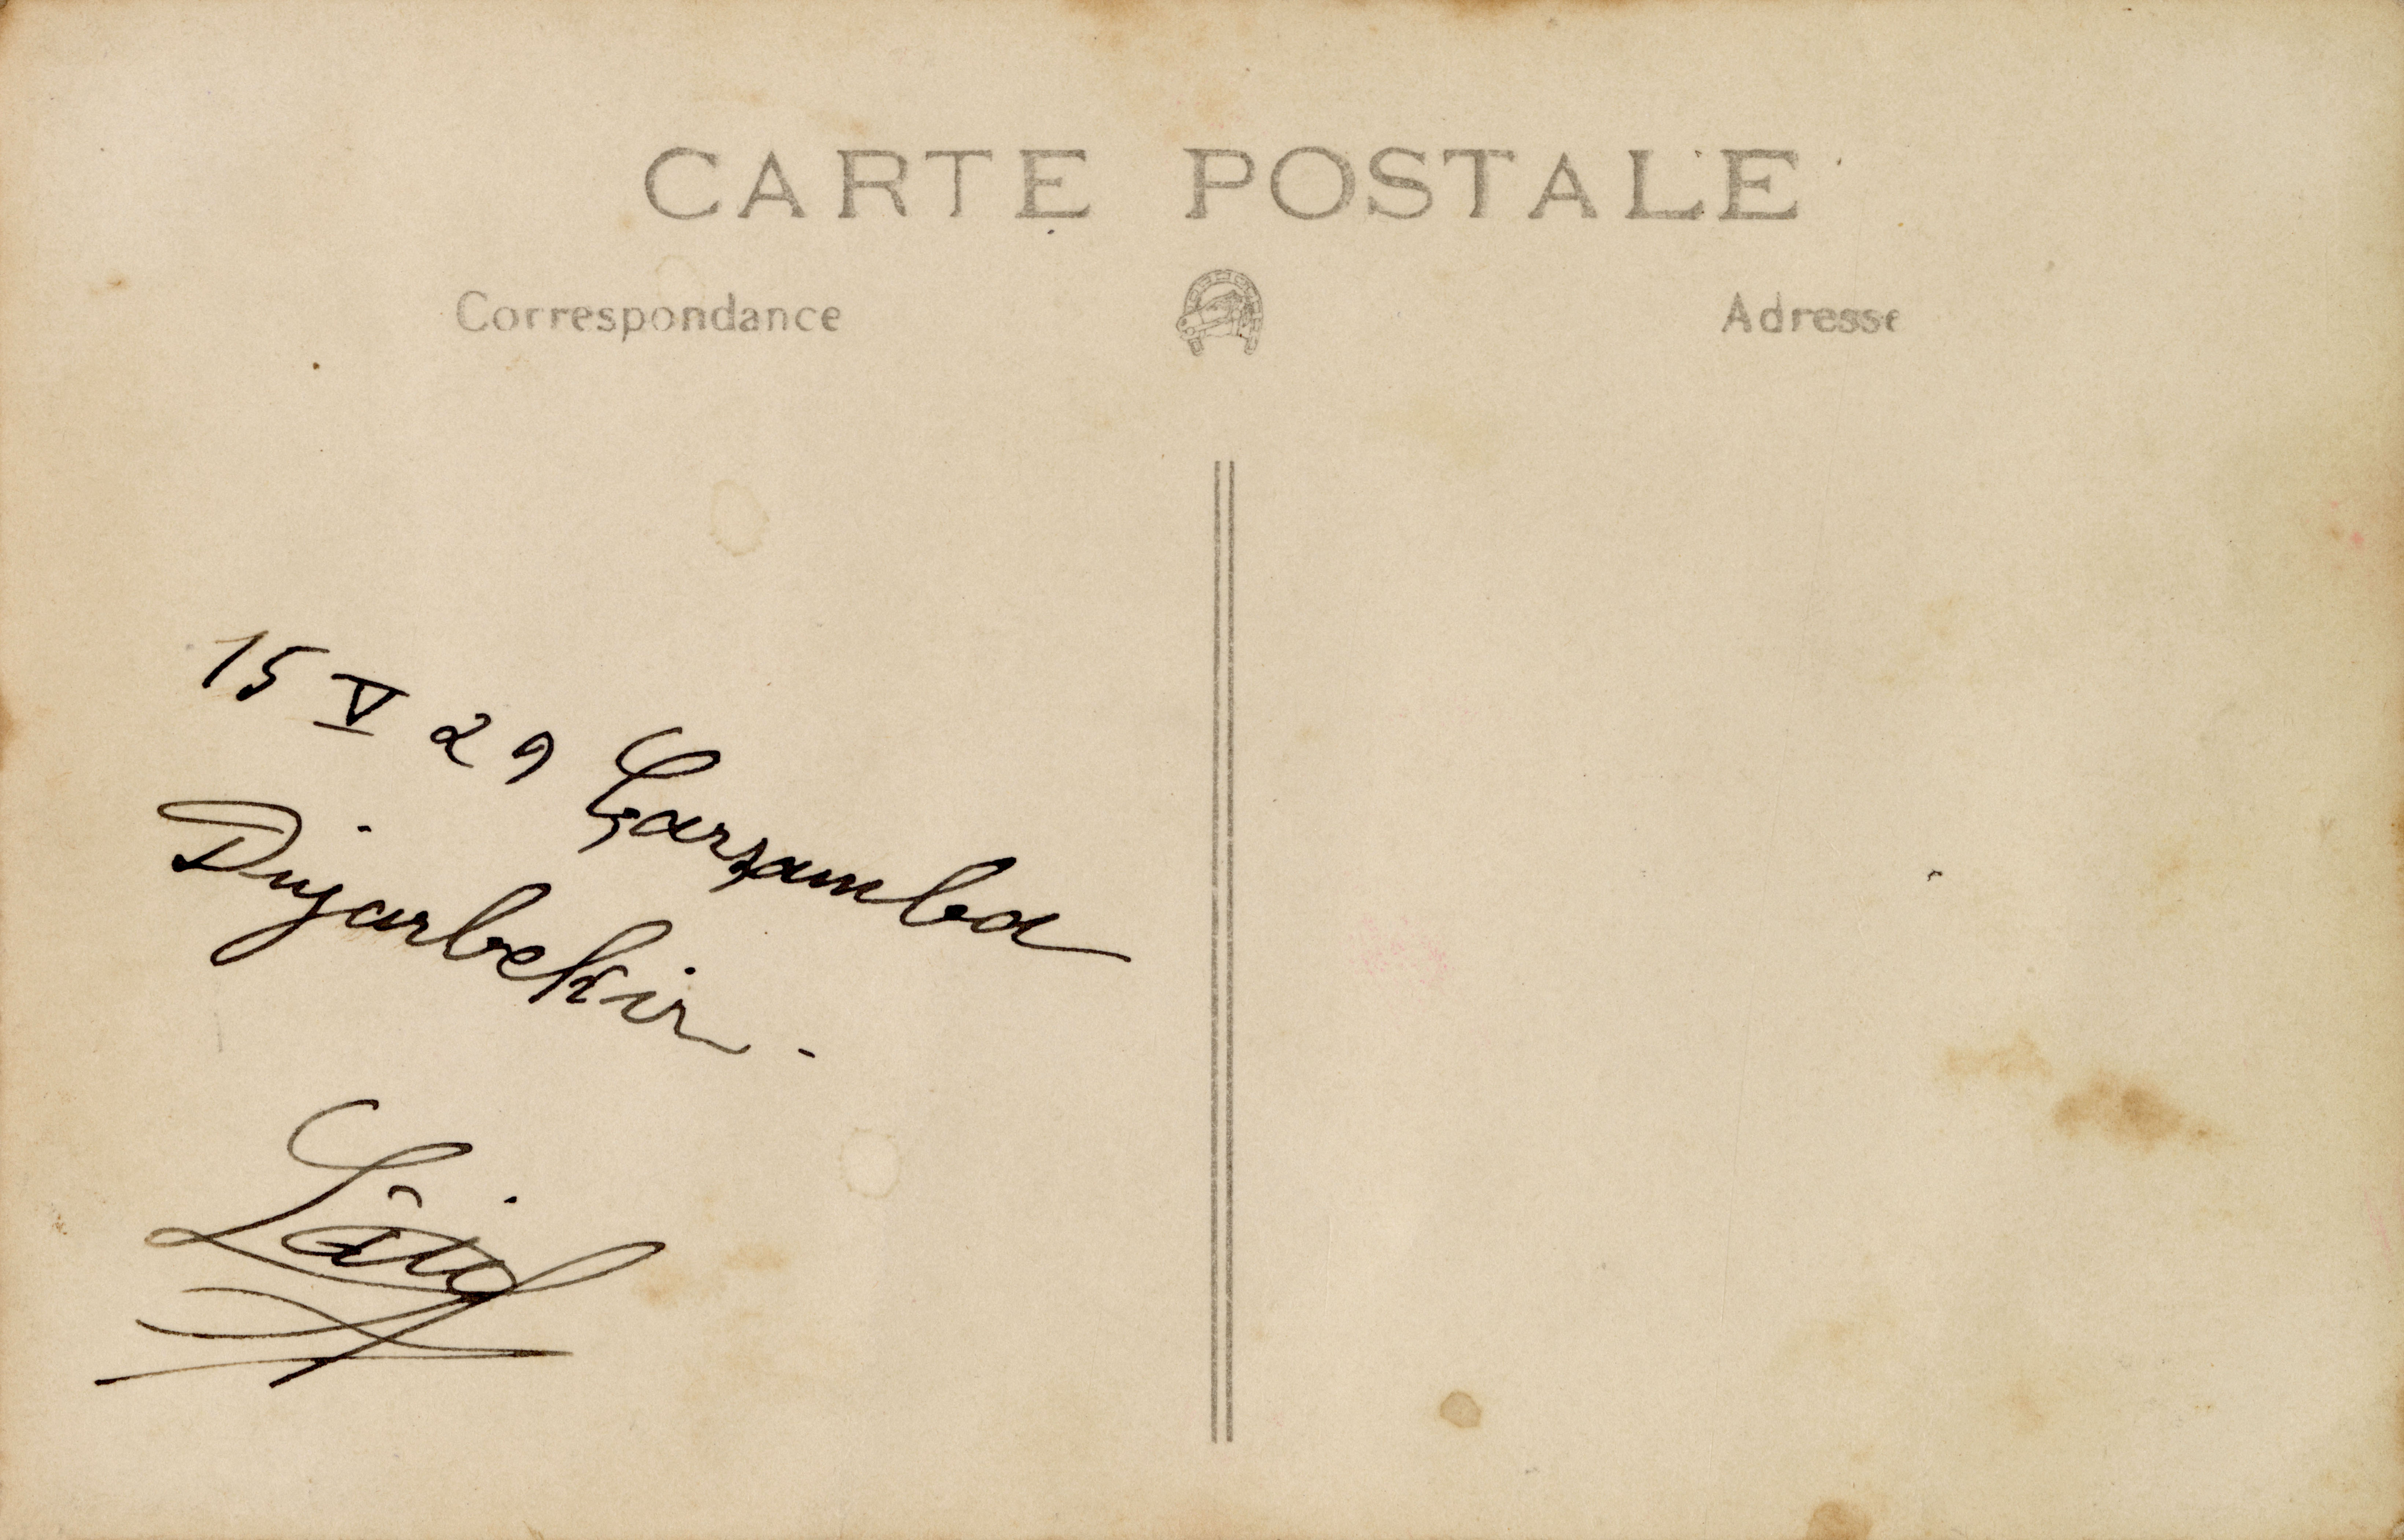 CARTE POSTALE
Correspondance
Adresse
15 V 29 Çarşamba
Diyarbekir.